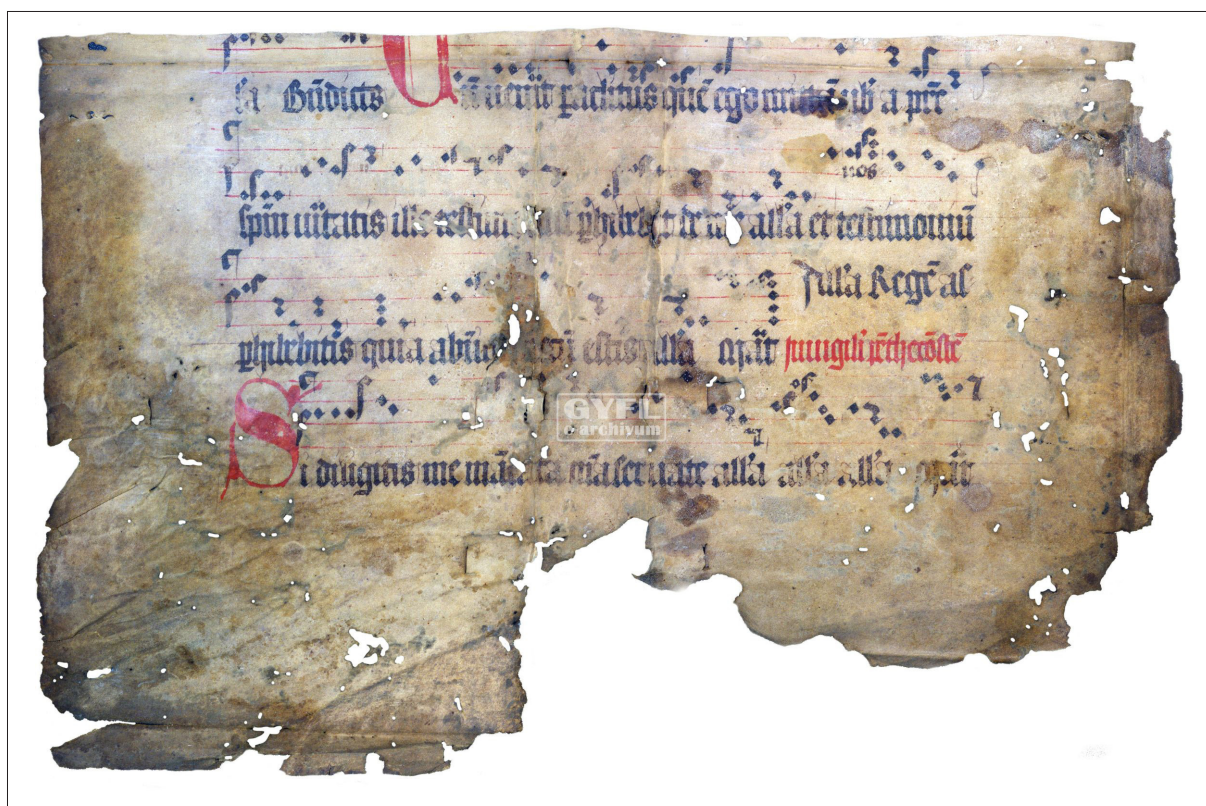 la Bñdicts Cũ uẽit paclitus quẽ ego mittã uob a pre
nos
spm uitatis ille phibebit de me alla et testimoniũ
alla Regẽ as
phibebitis quia ab estis alla In uigili pẽthecostẽ
GYFL
e-archivum
Si diligitis me mãdata mea seruate alla alla alla